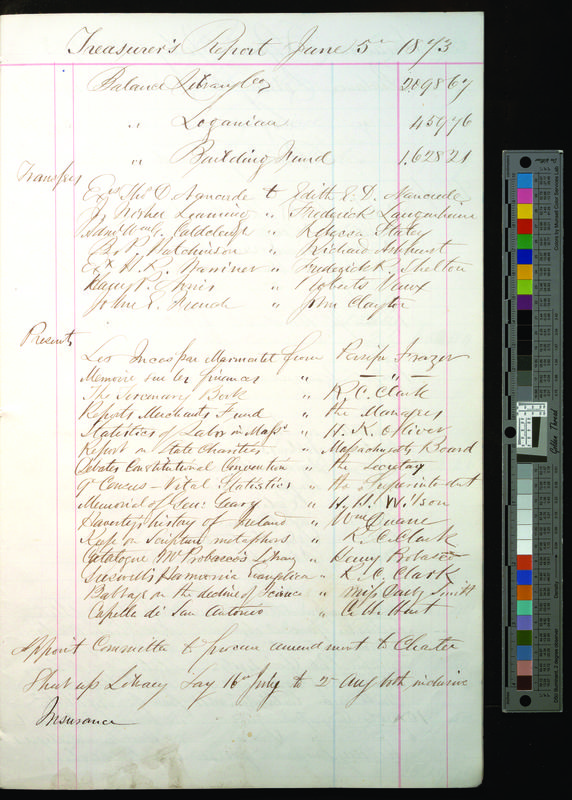 Treasurer's Report June 5" 1873
Balance Library Co 209867
" Loganian 45976
" Building Fund 1,62821
Transfers
Exrs Thos D Nancrede to Edith E. D. Nancrede
J. Fisher Leaming " Frederick Langenheim
" Rebecca Staley
P. Hutchinson " Richard Ashhurst
Ex H. K. " Frederick K. Shelton
" Roberts Vaux
John E. French " John Clayton
Presents
Les Incas par Marmontel from Persifor Frazer
Memoire sur les finances " — " —
The Book " R. C. Clark
Reports Merchants Fund " the Managers
Statistics of Labor in Massts " H. K. Oliver
Report on State Charities " Massachusetts Board
Debates Constitutional Convention " the Secretary
9th Census - Vital Statistics " the Superintendent
Memorial of Gen: Geary " H. H. Wilson
history of Ireland " Wm Duane
on Scripture metaphors " R. C. Clark
Catalogue Mr Probasco's Library " Henry Probasco
Harmonia evangelica " R. C. Clark
Babbage on the decline of Science " Miss Smith
Capella di San Antonio " C. H. Hart
Appoint Committee to procure amendment to Charter
Shut up Library say 16" July to 2" Aug both inclusive
Insurance